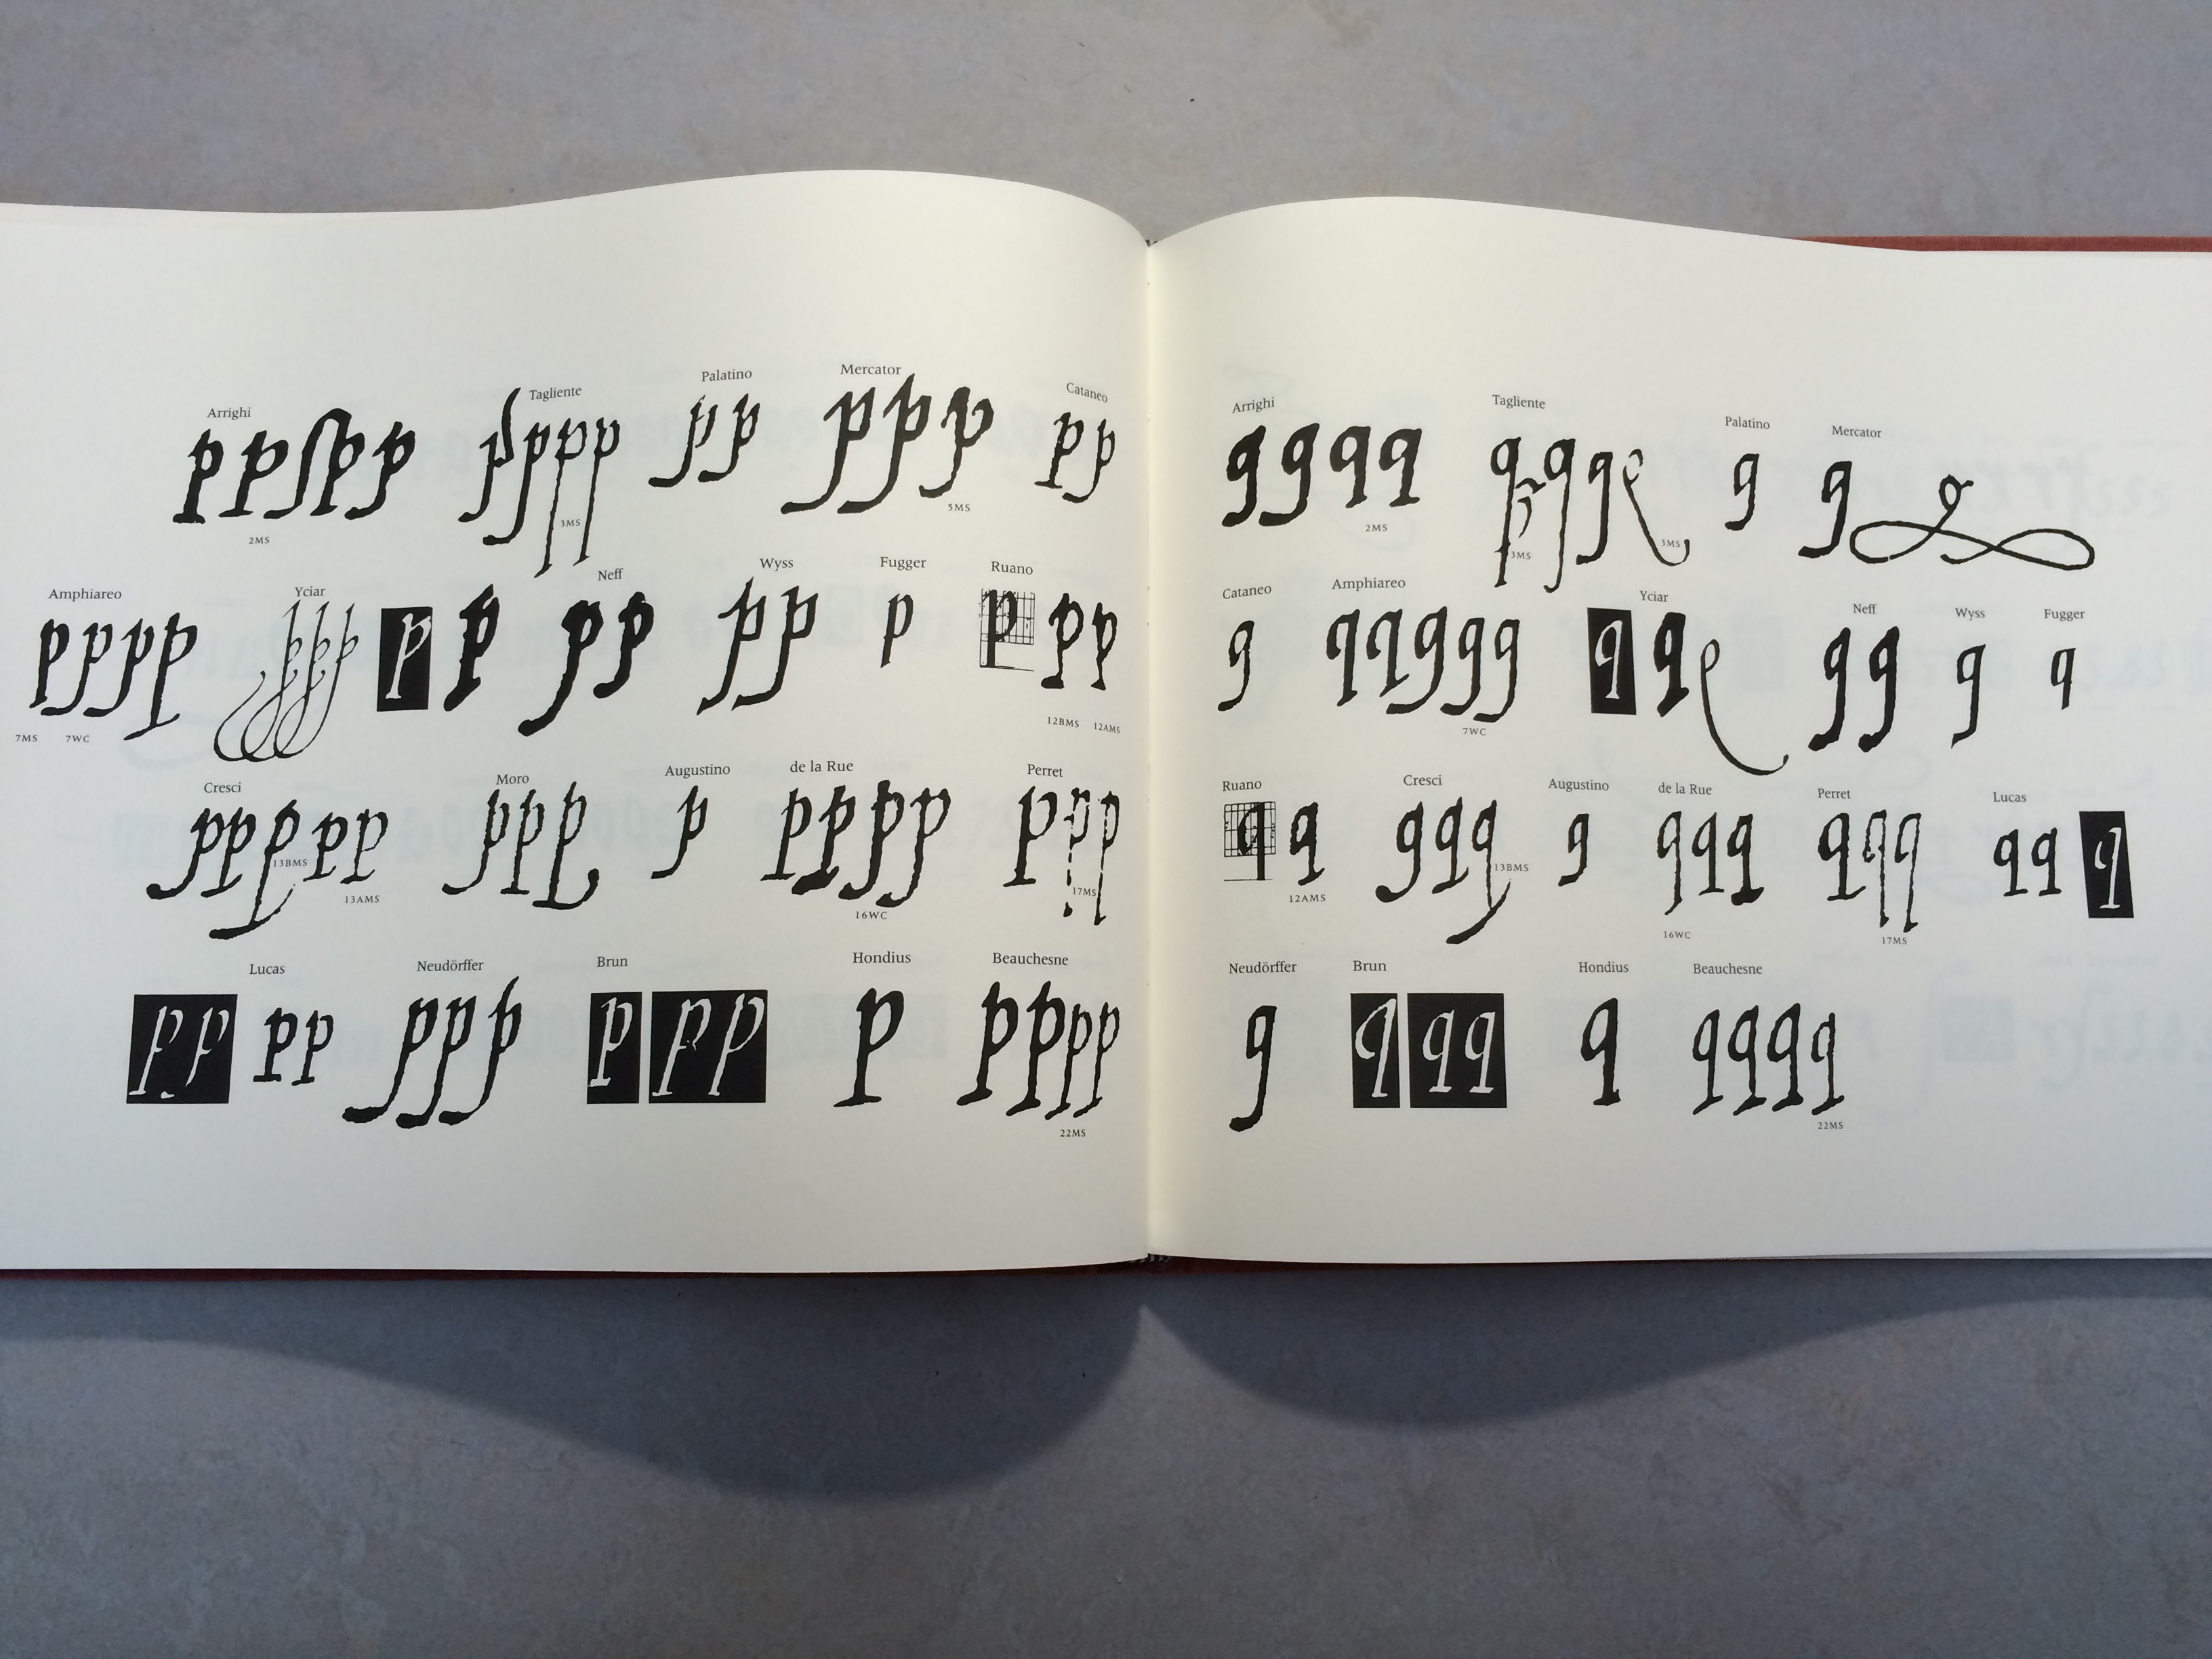 Arrighi Tagliente Palatino Mercator Cataneo
p p ſp p p p p p p p p p p p p p
2MS 3MS 5MS
Amphiareo Yciar Neff Wyss Fugger Ruano
p p p p p p p p p p p p p p p p p
7MS 7WC 12BMS 12AMS
Cresci Moro Augustino de la Rue Perret
p p p p p p p p p p p p p p p p
13BMS 13AMS 16WC 17MS
Lucas Neudörffer Brun Hondius Beauchesne
p p p p p p p p p p p p p p p
22MS
Arrighi Tagliente Palatino Mercator
q q q q q q q q q q q
2MS 3MS 3MS
Cataneo Amphiareo Yciar Neff Wyss Fugger
q q q q q q q q q q q q q
7WC
Ruano Cresci Augustino de la Rue Perret Lucas
q q q q q q q q q q q q q q q
12AMS 13BMS 16WC 17MS
Neudörffer Brun Hondius Beauchesne
q q q q q q q q q
22MS